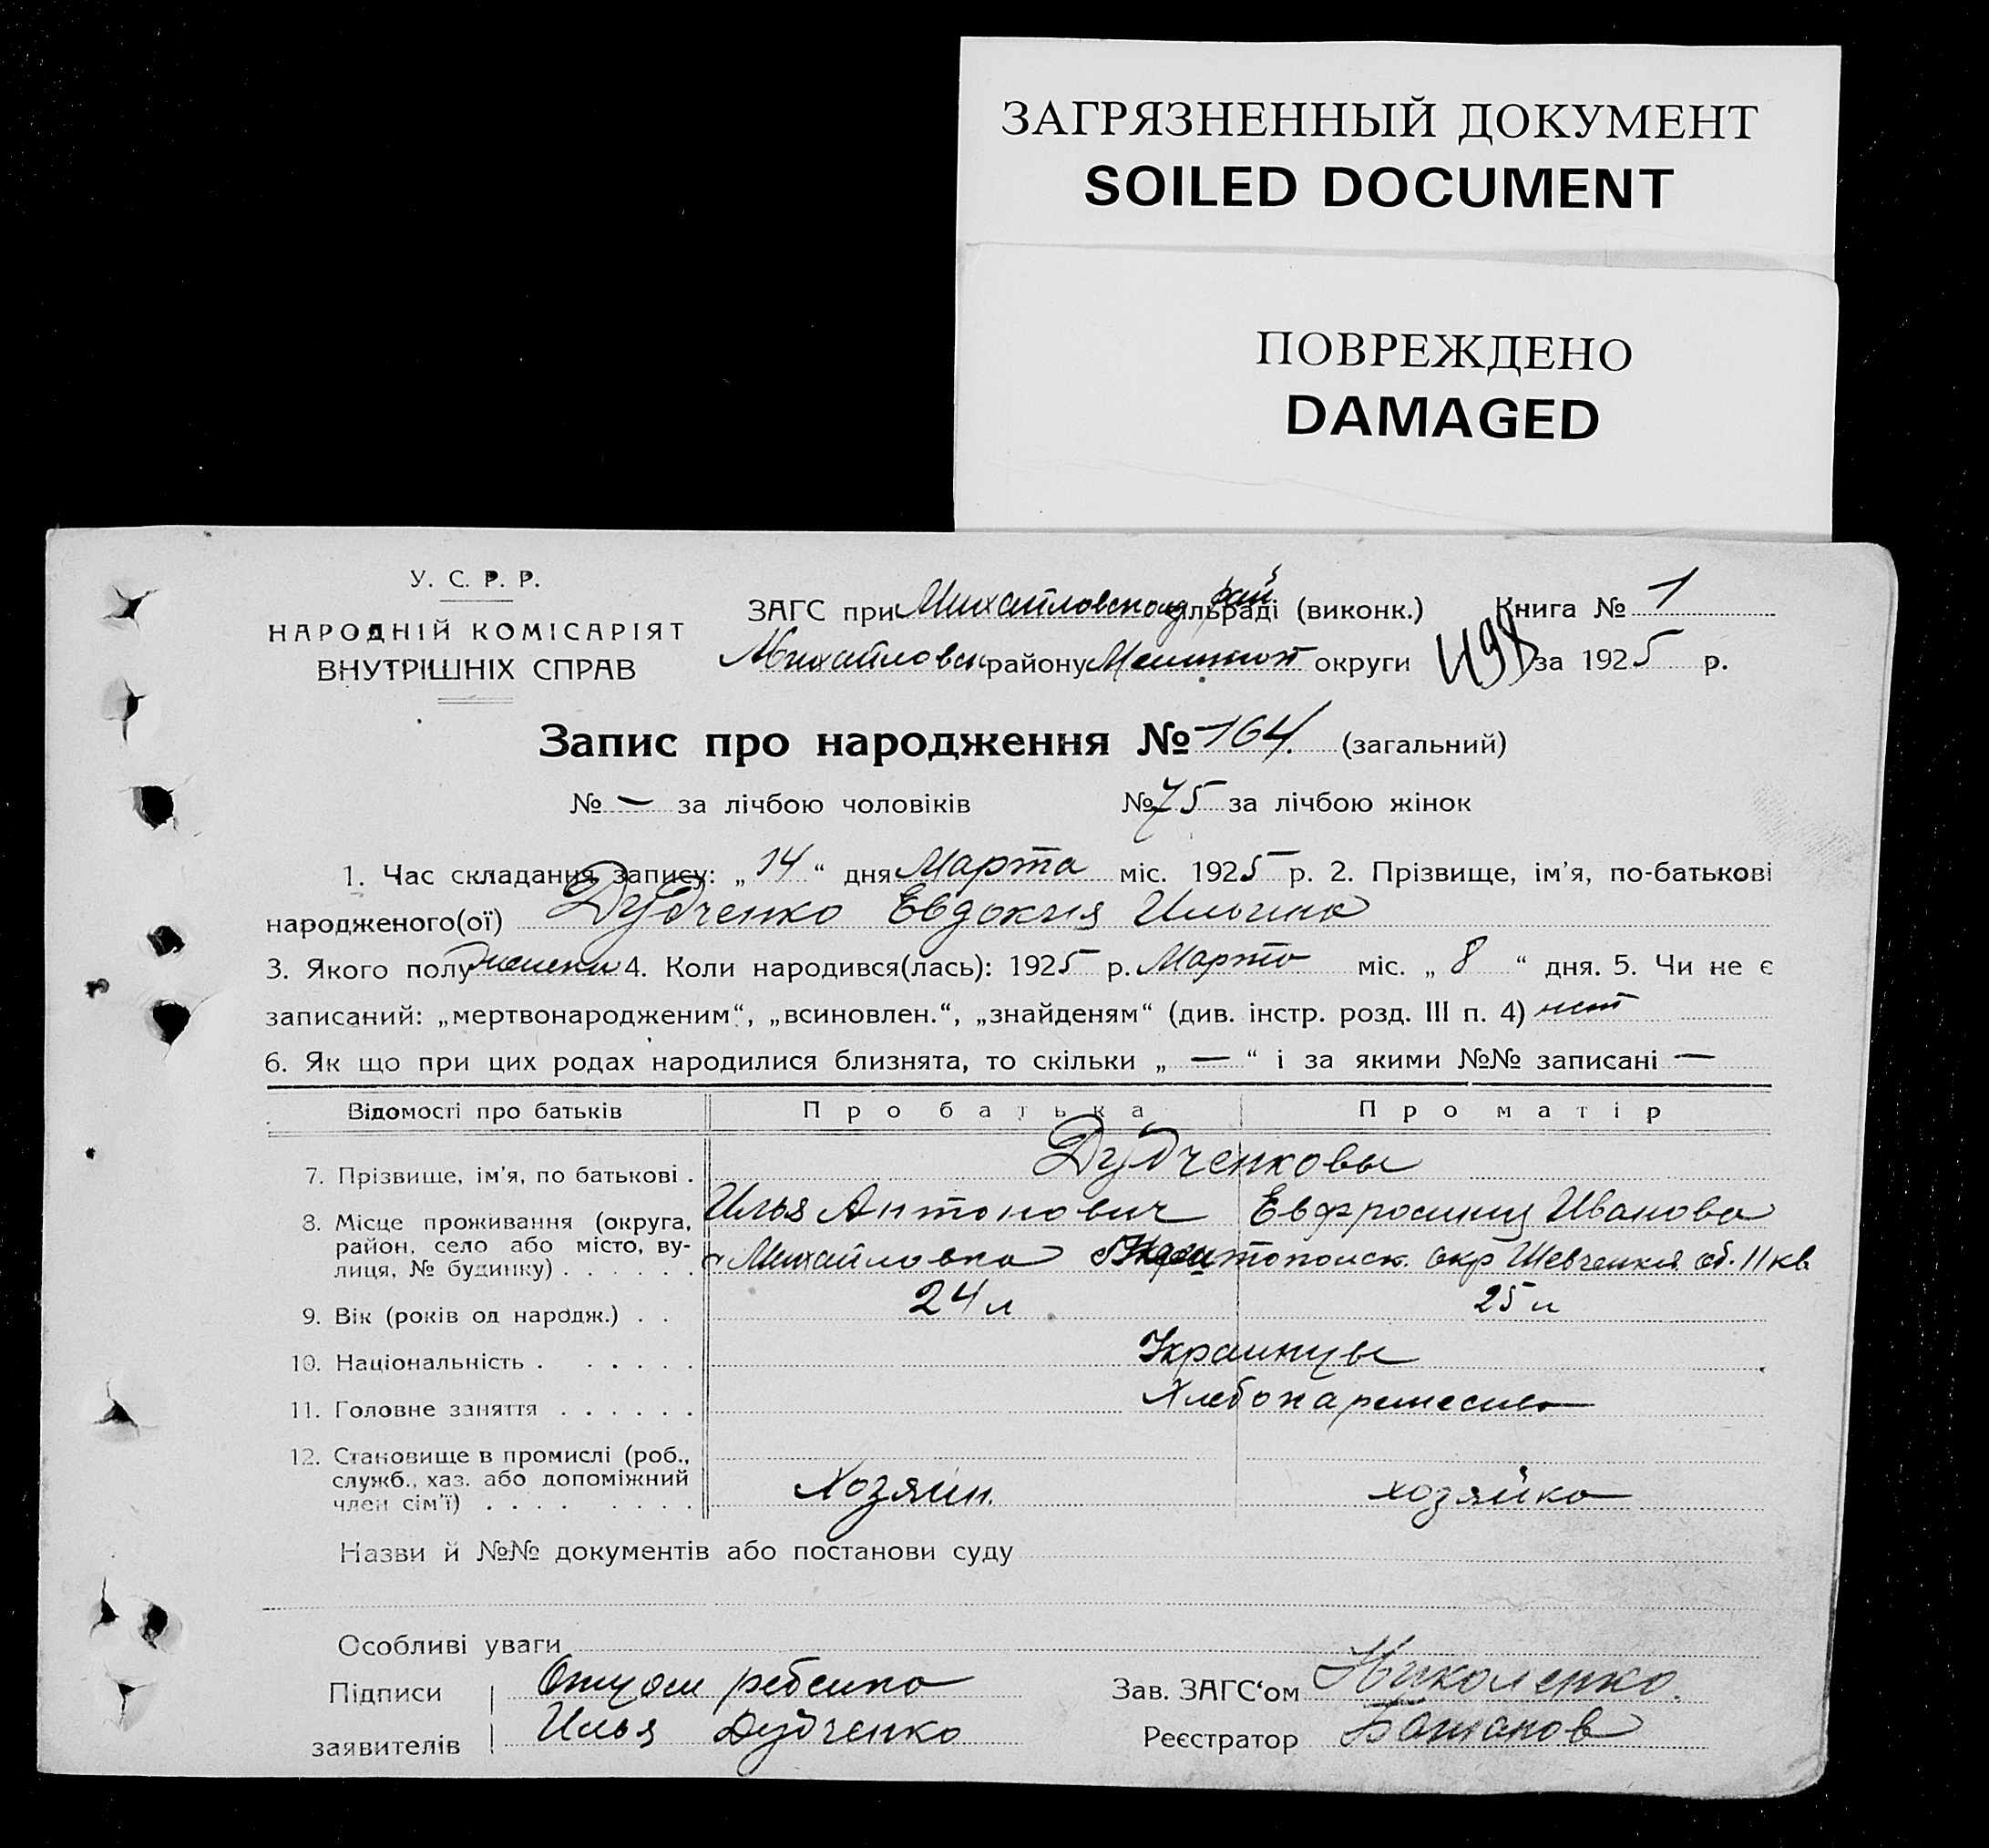 ЗАГРЯЗНЕННЫЙ ДОКУМЕНТ
SOILED DOCUMENT
ПОВРЕЖДЕНО
DAMAGED
У. С. Р. Р.
НАРОДНІЙ КОМІСАРІЯТ
ВНУТРІШНІХ СПРАВ
ЗАГС при Михайловском рай сільраді (виконк.) Книга № 1
Михайловск району Мелитоп округи 498 за 1925 р.
Запис про народження № 164. (загальний)
№ — за лічбою чоловіків № 75 за лічбою жінок
1. Час складання запису: „ 14 “ дня Марта міс. 1925 р. 2. Прізвище, ім'я, по-батькові
народженого(ої) Дудченко Евдокия Ильина
3. Якого полу женски 4. Коли народився(лась): 1925 р. Марта міс. „ 8 “ дня. 5. Чи не є
записаний: „мертвонародженим“, „всиновлен.“, „знайденям“ (див. інстр. розд. III п. 4) нет
6. Як що при цих родах народилися близнята, то скільки „ — “ і за якими №№ записані —
Відомості про батьків Про батька Про матір
7. Прізвище, ім'я, по батькові . Дудченковы
Илья Антонович Евфросиния Иванова
8. Місце проживання (округа, район, село або місто, ву-
лиця, № будинку) . . . . . . с Михайловка окр Шевченка об. 11 кв
9. Вік (років од народж.) . . 24 л 25 л
10. Національність . . . . . . Украинцы
11. Головне заняття . . . . . . Хлебопашество
12. Становище в промислі (роб.,
служб., хаз. або допоміжний
член сім'ї) . . . . . . . . Хозяин. хозяйка
Назви й №№ документів або постанови суду
Особливі уваги
Підписи Отцом ребенка Зав. ЗАГС'ом Николенко.
заявителів Илья Дудченко Реєстратор